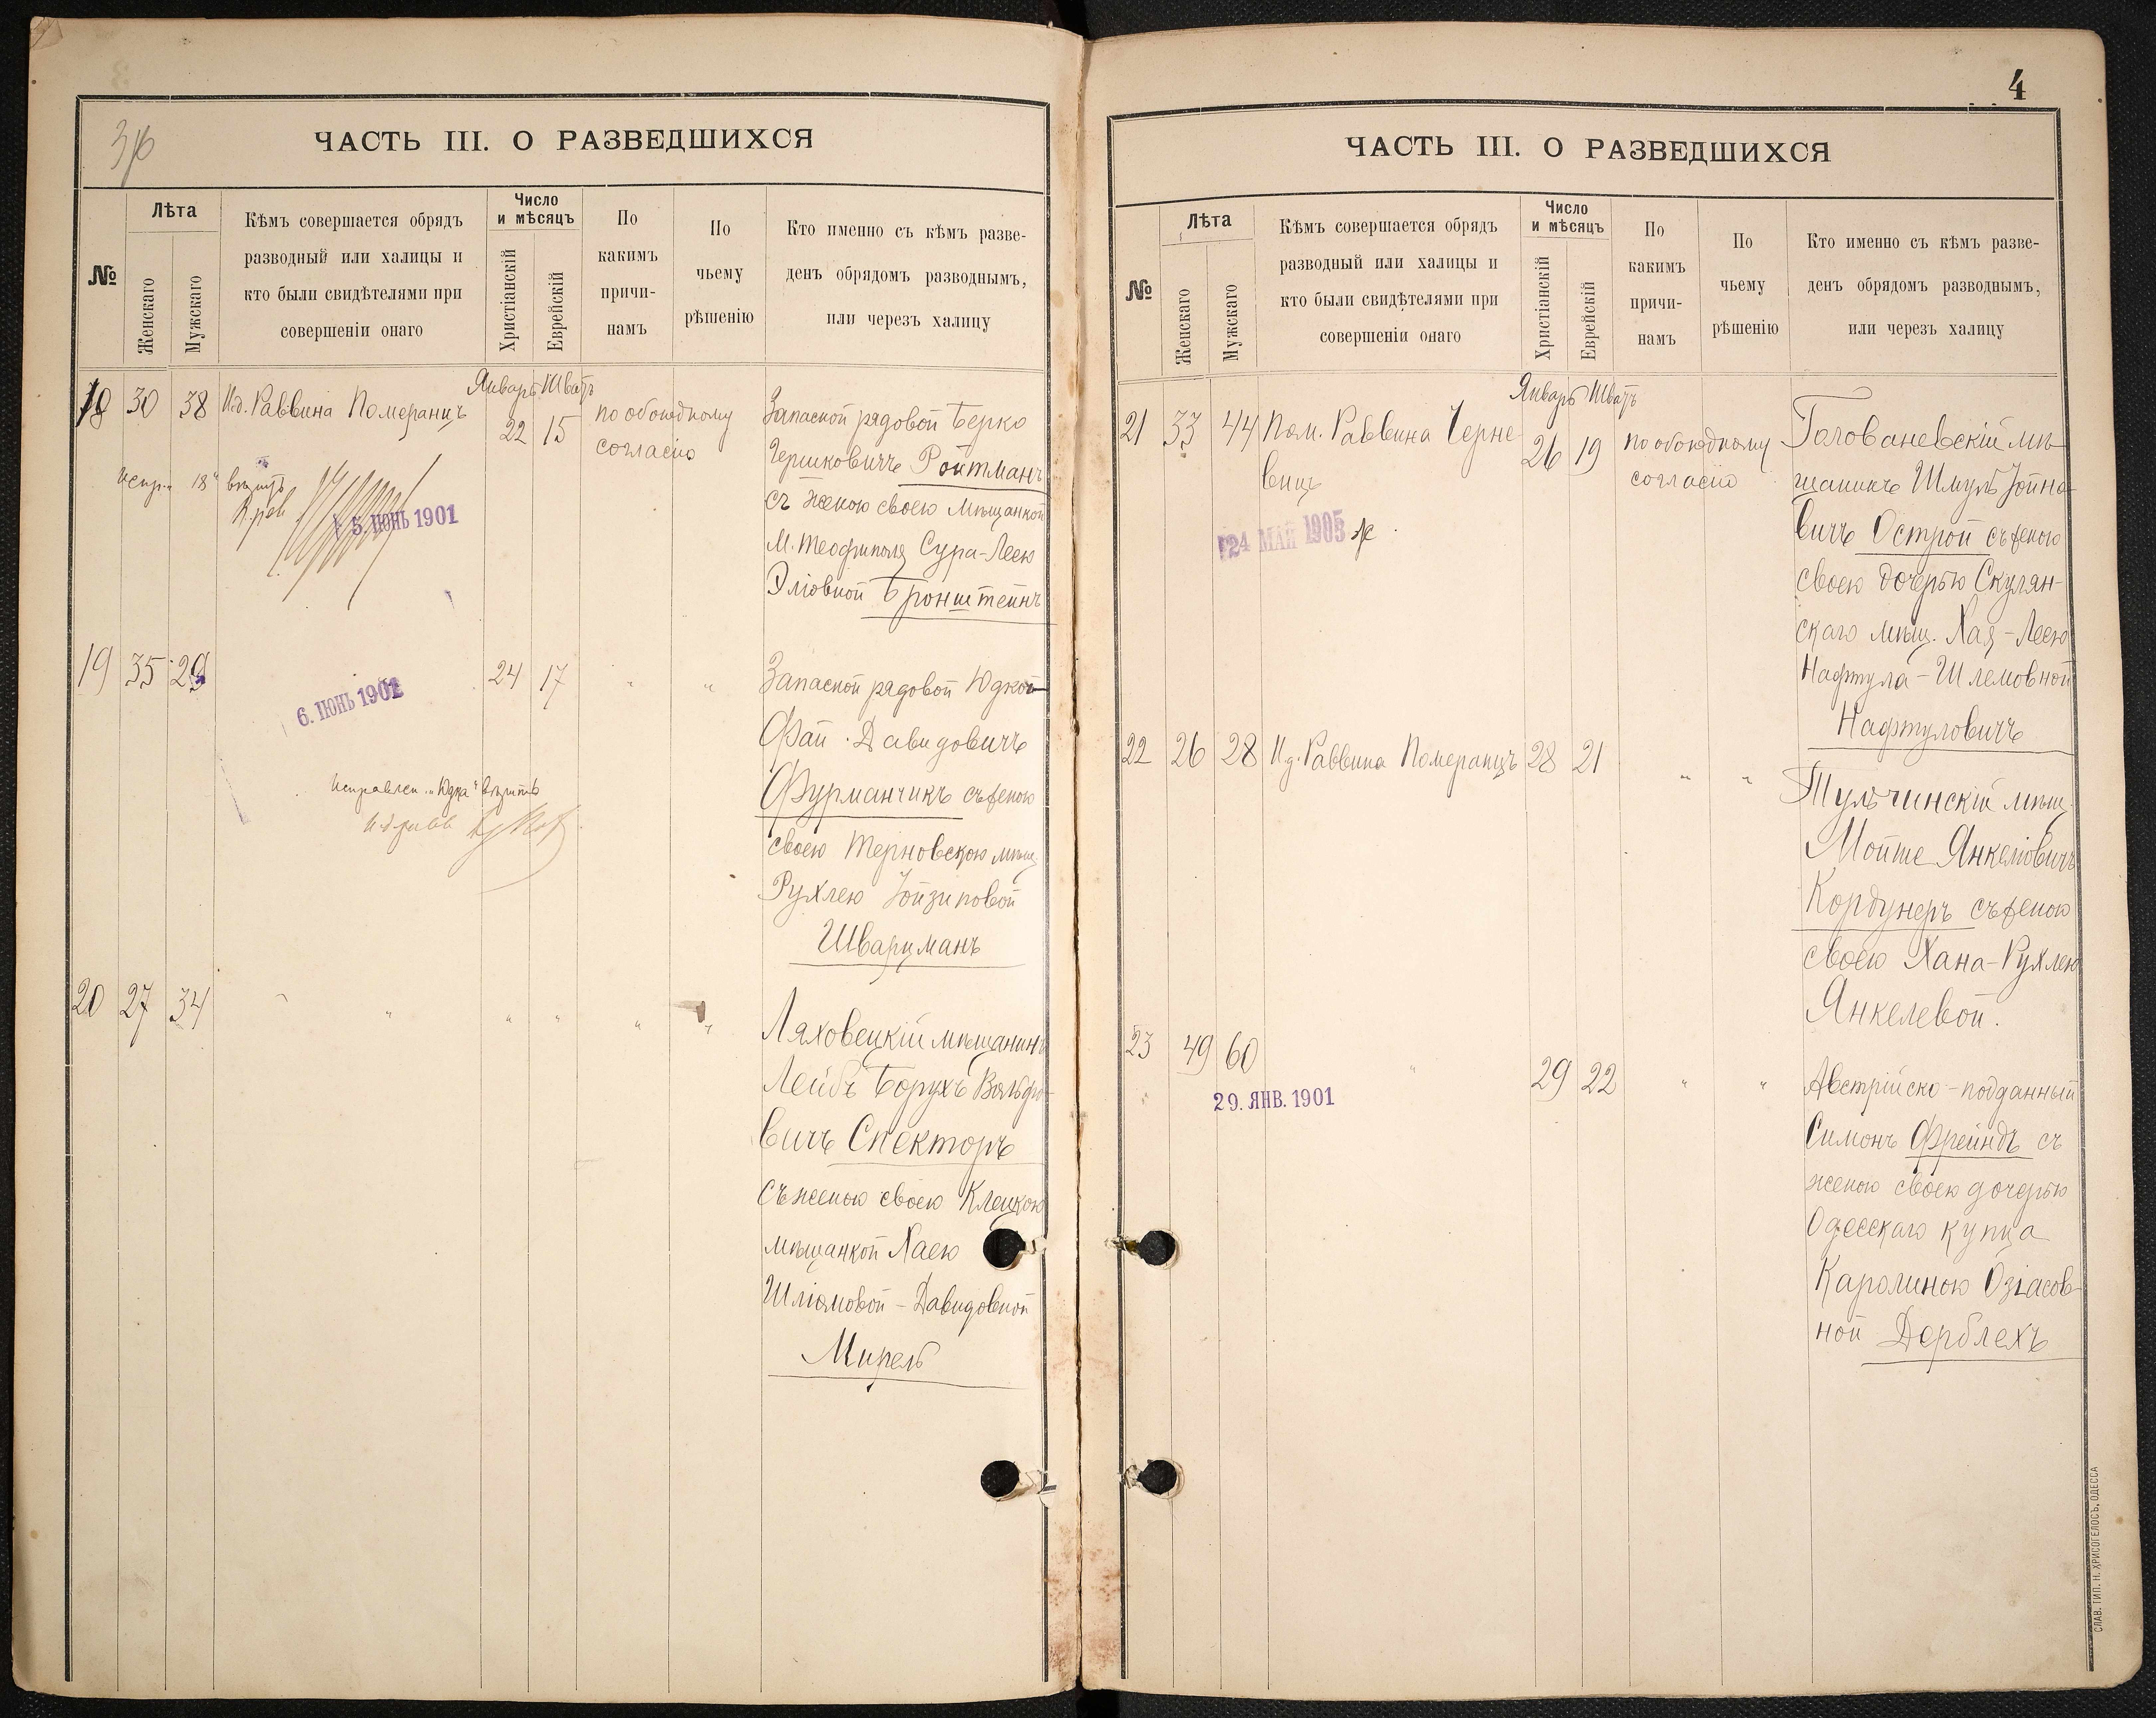 ЧАСТЬ III. О РАЗВЕДШИХСЯ
№
Лѣта
Женскаго
Мужскаго
Кѣмъ совершается обрядъ
разводный или халицы и
кто были свидѣтелями при
совершеніи онаго
Число
и мѣсяцъ
Христіанскій
Еврейскій
По
какимъ
причи-
намъ
По
чьему
рѣшенію
Кто именно съ кѣмъ разве-
денъ обрядомъ разводнымъ,
или черезъ халицу
Январь Шватъ
18 30 38 И.д. Раввина Померанцъ 22 15 по обоюдному
согласію
Запасной рядовой Берко
Гершковичъ Ройтманъ
съ женою своею мѣщанкой
м. Теофиполя Сура-Леею
Эліовной Бронштейнъ
испр. "18" вѣрить
5. ІЮНЬ 1901
19 35 29 24 17 " "
6. ІЮНЬ 1902
Запасной рядовой Юдко
Фай. Давидовичъ
Фурманчикъ съ женою
своею Терновскою мѣщ.
Рухлею Іойзиповой
Шварцманъ
Исправлен. "Юдка" вѣрить
20 27 34 " " " " "
Ляховецкій мѣщанинъ
Лейбъ Борухъ Вольфо-
вичъ Спекторъ
съ женою своею Клецкою
мѣщанкой Хаею
Шліомовой-Давидовной
Мирель
4
ЧАСТЬ III. О РАЗВЕДШИХСЯ
№
Лѣта
Женскаго
Мужскаго
Кѣмъ совершается обрядъ
разводный или халицы и
кто были свидѣтелями при
совершеніи онаго
Число
и мѣсяцъ
Христіанскій
Еврейскій
По
какимъ
причи-
намъ
По
чьему
рѣшенію
Кто именно съ кѣмъ разве-
денъ обрядомъ разводнымъ,
или черезъ халицу
Январь Шватъ
21 33 44 Пом. Раввина Черне-
вицъ
26 19 по обоюдному
согласію
24 МАЙ 1905
Голованевскій мѣ-
щанинъ Шмуль Іойно-
вичъ Острой съ женою
своею дочерью Скулян-
скаго мѣщ. Хая-Леею
Нафтула-Шлемовной
Нафтуловичъ
22 26 28 И.д. Раввина Померанцъ 28 21 " "
Тульчинскій мѣщ.
Мойше Янкеліовичъ
Кордунеръ съ женою
своею Хана-Рухлею
Янкелевой.
23 49 60 " 29 22 " "
29. ЯНВ. 1901
Австрійско-подданный
Симонъ Фрейндъ съ
женою своею дочерью
Одесскаго купца
Каролиною Озіасов-
ной Дерблехъ
СЛАВ. ТИП. Н. ХРИСОГЕЛОСЪ, ОДЕССА